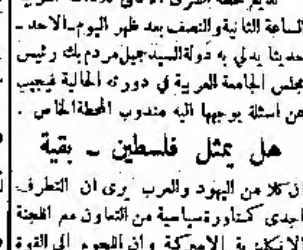 الساعة الثانية والنصف بعد ظهر اليوم ـ الاحد ـ
حديثا يدلي به دولة السيد جميل مردم بك رئيس
مجلس الجامعة العربية في دورته الحالية فيجيب
عن اسئلة يوجهها اليه مندوب المحطة الخاص .
هل يمثل فلسطين ـ بقية
ان كلا من اليهود والعرب يرى ان التطرف
اجدى كمناورة سياسية من التعاون مع اللجنة
وان اللجوء الى القوة